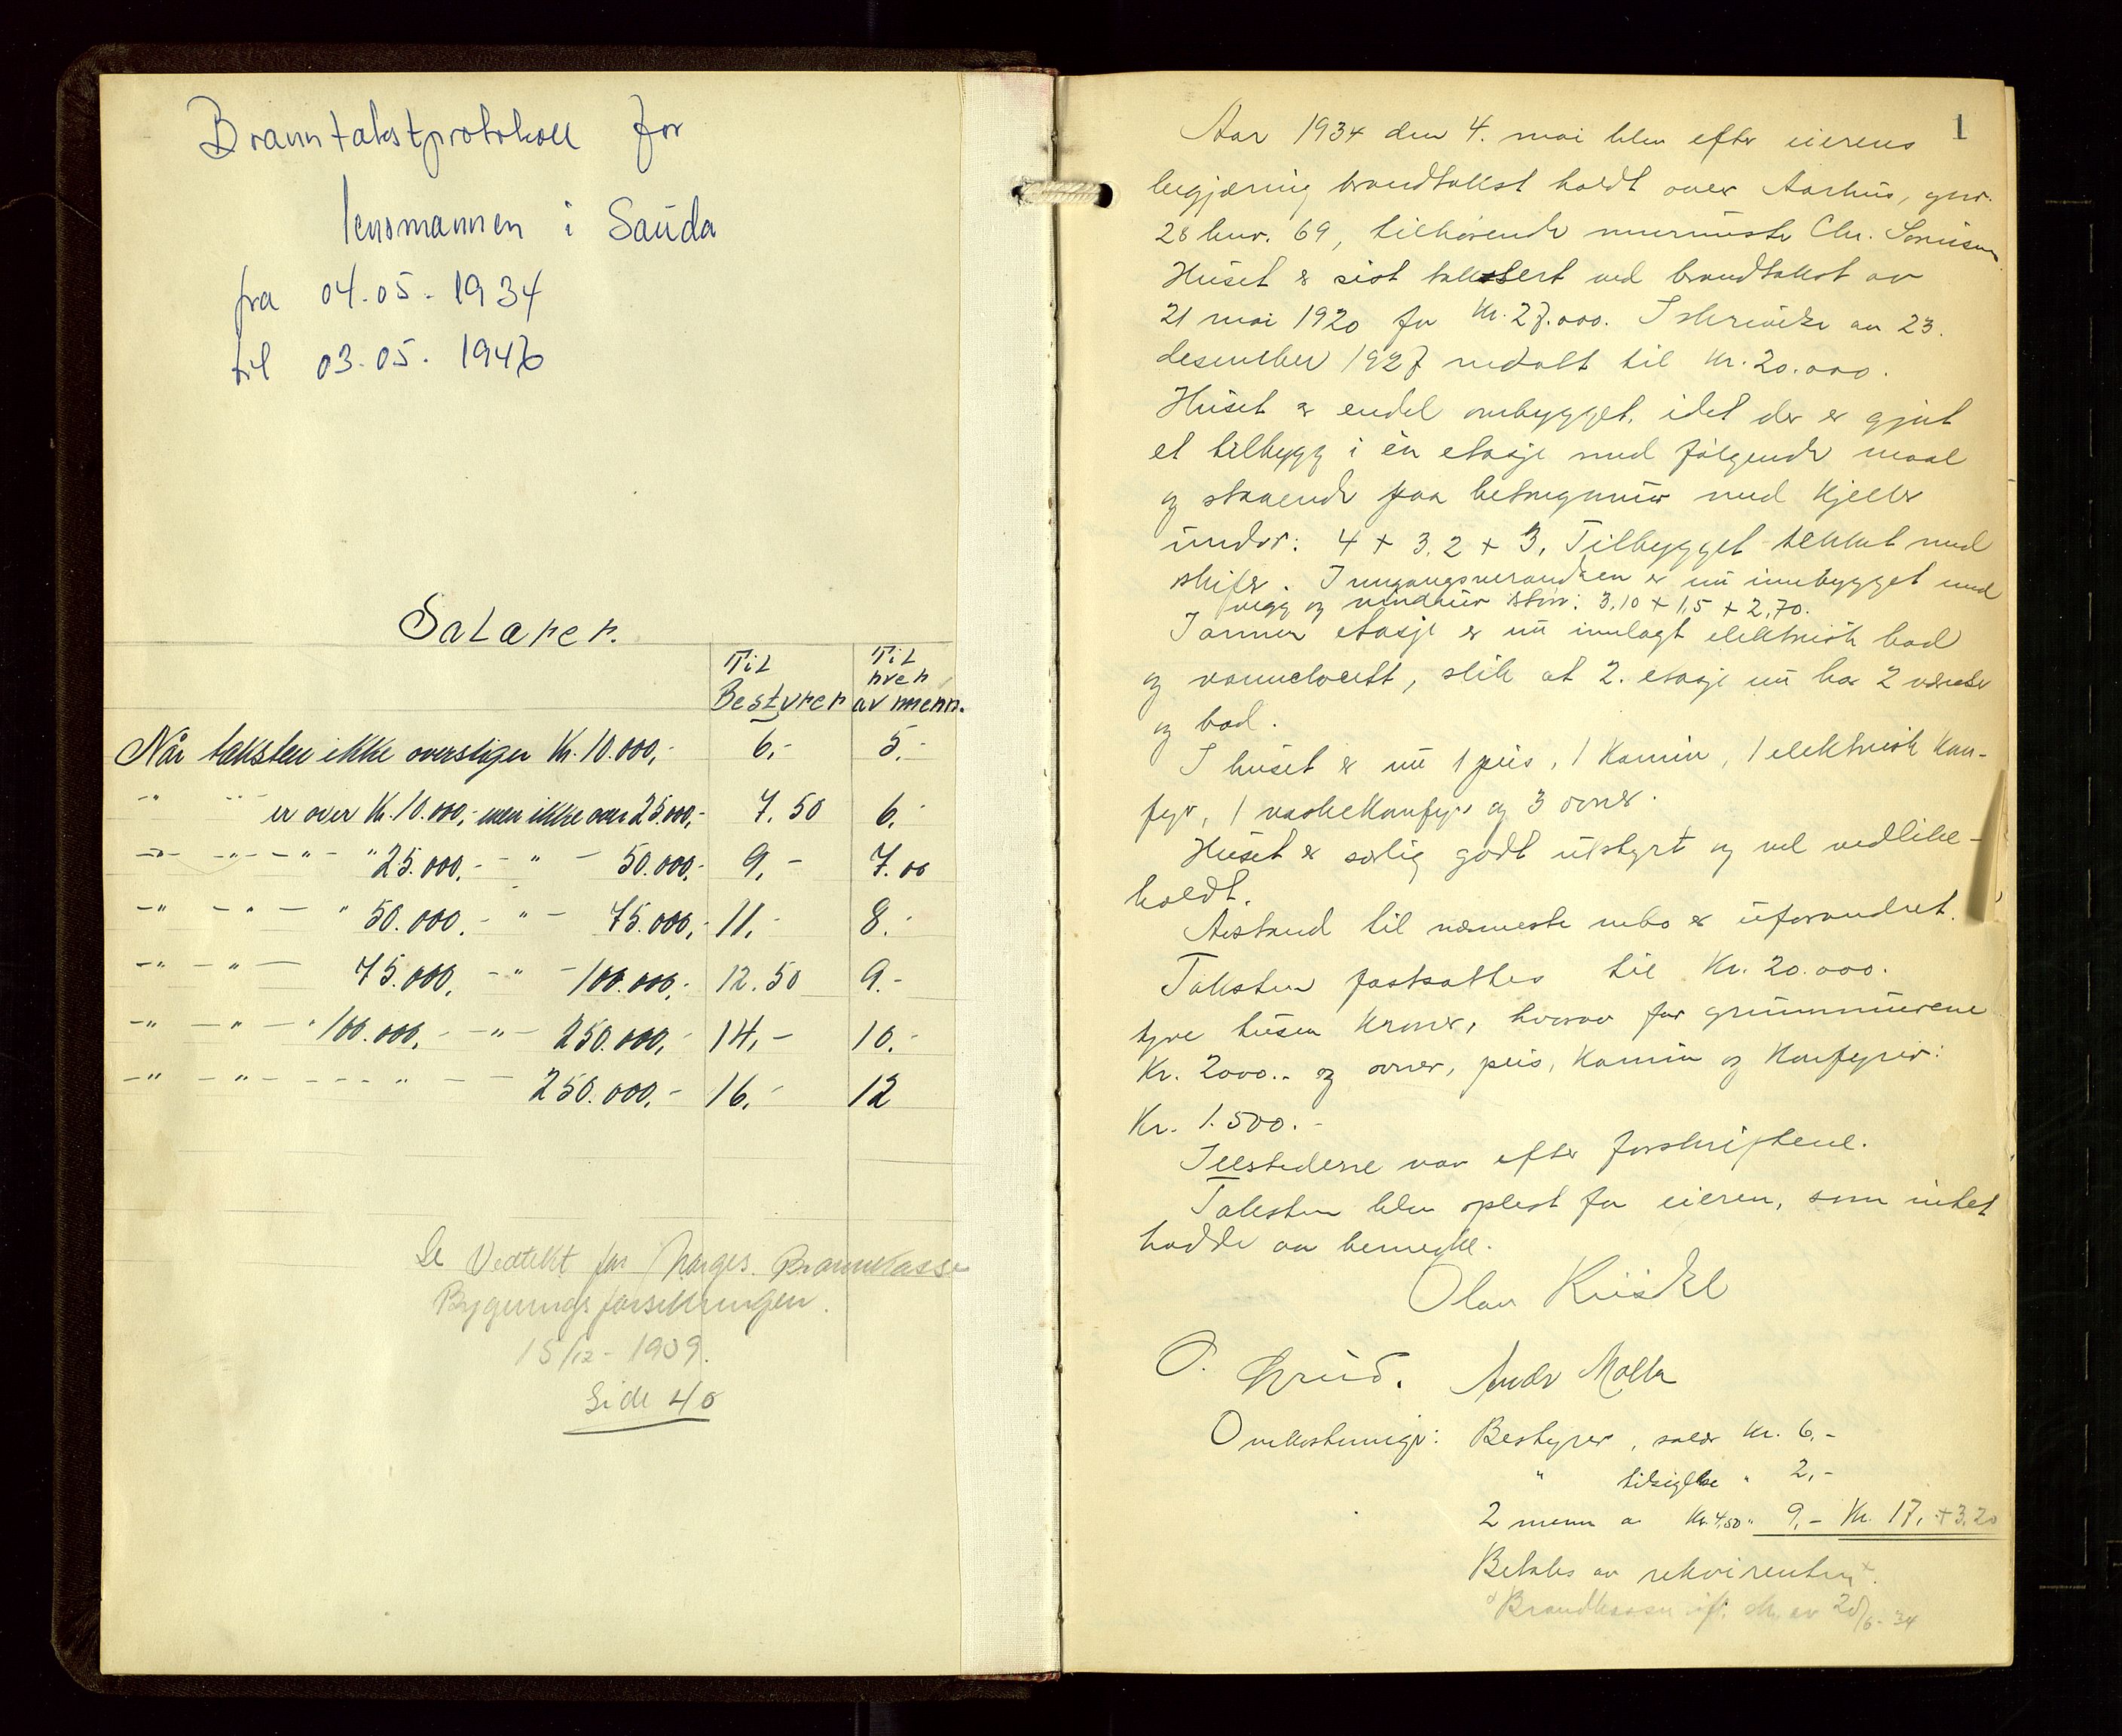 Branntakstprotokoll for
lensmannen i Sauda
fra 04.05.1934
til 03.05.1946
Salarer.
Til Bestyrer
Til hver av menn.
Når taksten ikke overstiger Kr. 10.000,- 6,- 5.-
-"- -"- er over Kr. 10.000,- men ikke over 25.000,- 7.50 6.-
-"- -"- -"- " 25.000.- -"- 50.000.- 9,- 7.00
-"- -"- " 50.000.- "- 75.000,- 11,- 8.-
-"- -"- 75.000. -"- 100.000,- 12.50 9.-
-"- -"- " 100.000,- -"- 250.000,- 14,- 10.-
-"- -"- -"- 250.000.- 16.- 12
Se Vedtekt for Norges Brannkasse
Bygningsforsikringen.
15/12-1909.
Side 40
1
Aar 1934 den 4. mai blev efter eierens
begjæring brandtakst holdt over Aarhus, gnr.
28 bnr. 69, tilhørende murmester Chr.
Huset er sist takstert ved brandtakst av
21 mai 1920 for Kr. 27.000. I skrivelse av 23.
desember 1927 nedsatt til Kr. 20.000.
Huset er endel ombygget, idet der er gjort
et tilbygg i én etasje med følgende maal
og staaende paa betongmur med kjeller
under: 4 + 3.2 + 3. Tilbygget tekket med
skifer. Inngangsverandaen er nu innbygget med
vegg og vinduer størr: 3,10 + 1,5 + 2,70.
I annen etasje er nu innlagt elektrisk bad
og vannclosett, slik at 2. etasje nu har 2 værelser
og bad.
I huset er nu 1 peis, 1 kamin, 1 elektrisk kom-
fyr, 1 vaskekomfyr og 3 ovner.
Huset er særlig godt utstyrt og vel vedlike-
holdt.
Avstand til nærmeste nabo er uforandret.
Taksten fastsattes til Kr. 20.000.
tyve tusen kroner, hvorav for grunnmurene
Kr. 2000.- og ovner, peis, kamin og komfyrer:
Kr. 1.500.-
Ildstederne var efter forskriftene.
Taksten blev oplest for eieren, som intet
hadde aa bemerke.
Olav
O. Andr Molla
Omkostninger: Bestyrer, salær Kr. 6,-
" tilsigelse " 2,-
2 menn a Kr. 4,50 " 9,- Kr. 17,- + 3.20
Betales av rekvirenten x.
x Brandkassen ifl. skr. av 20/6-34